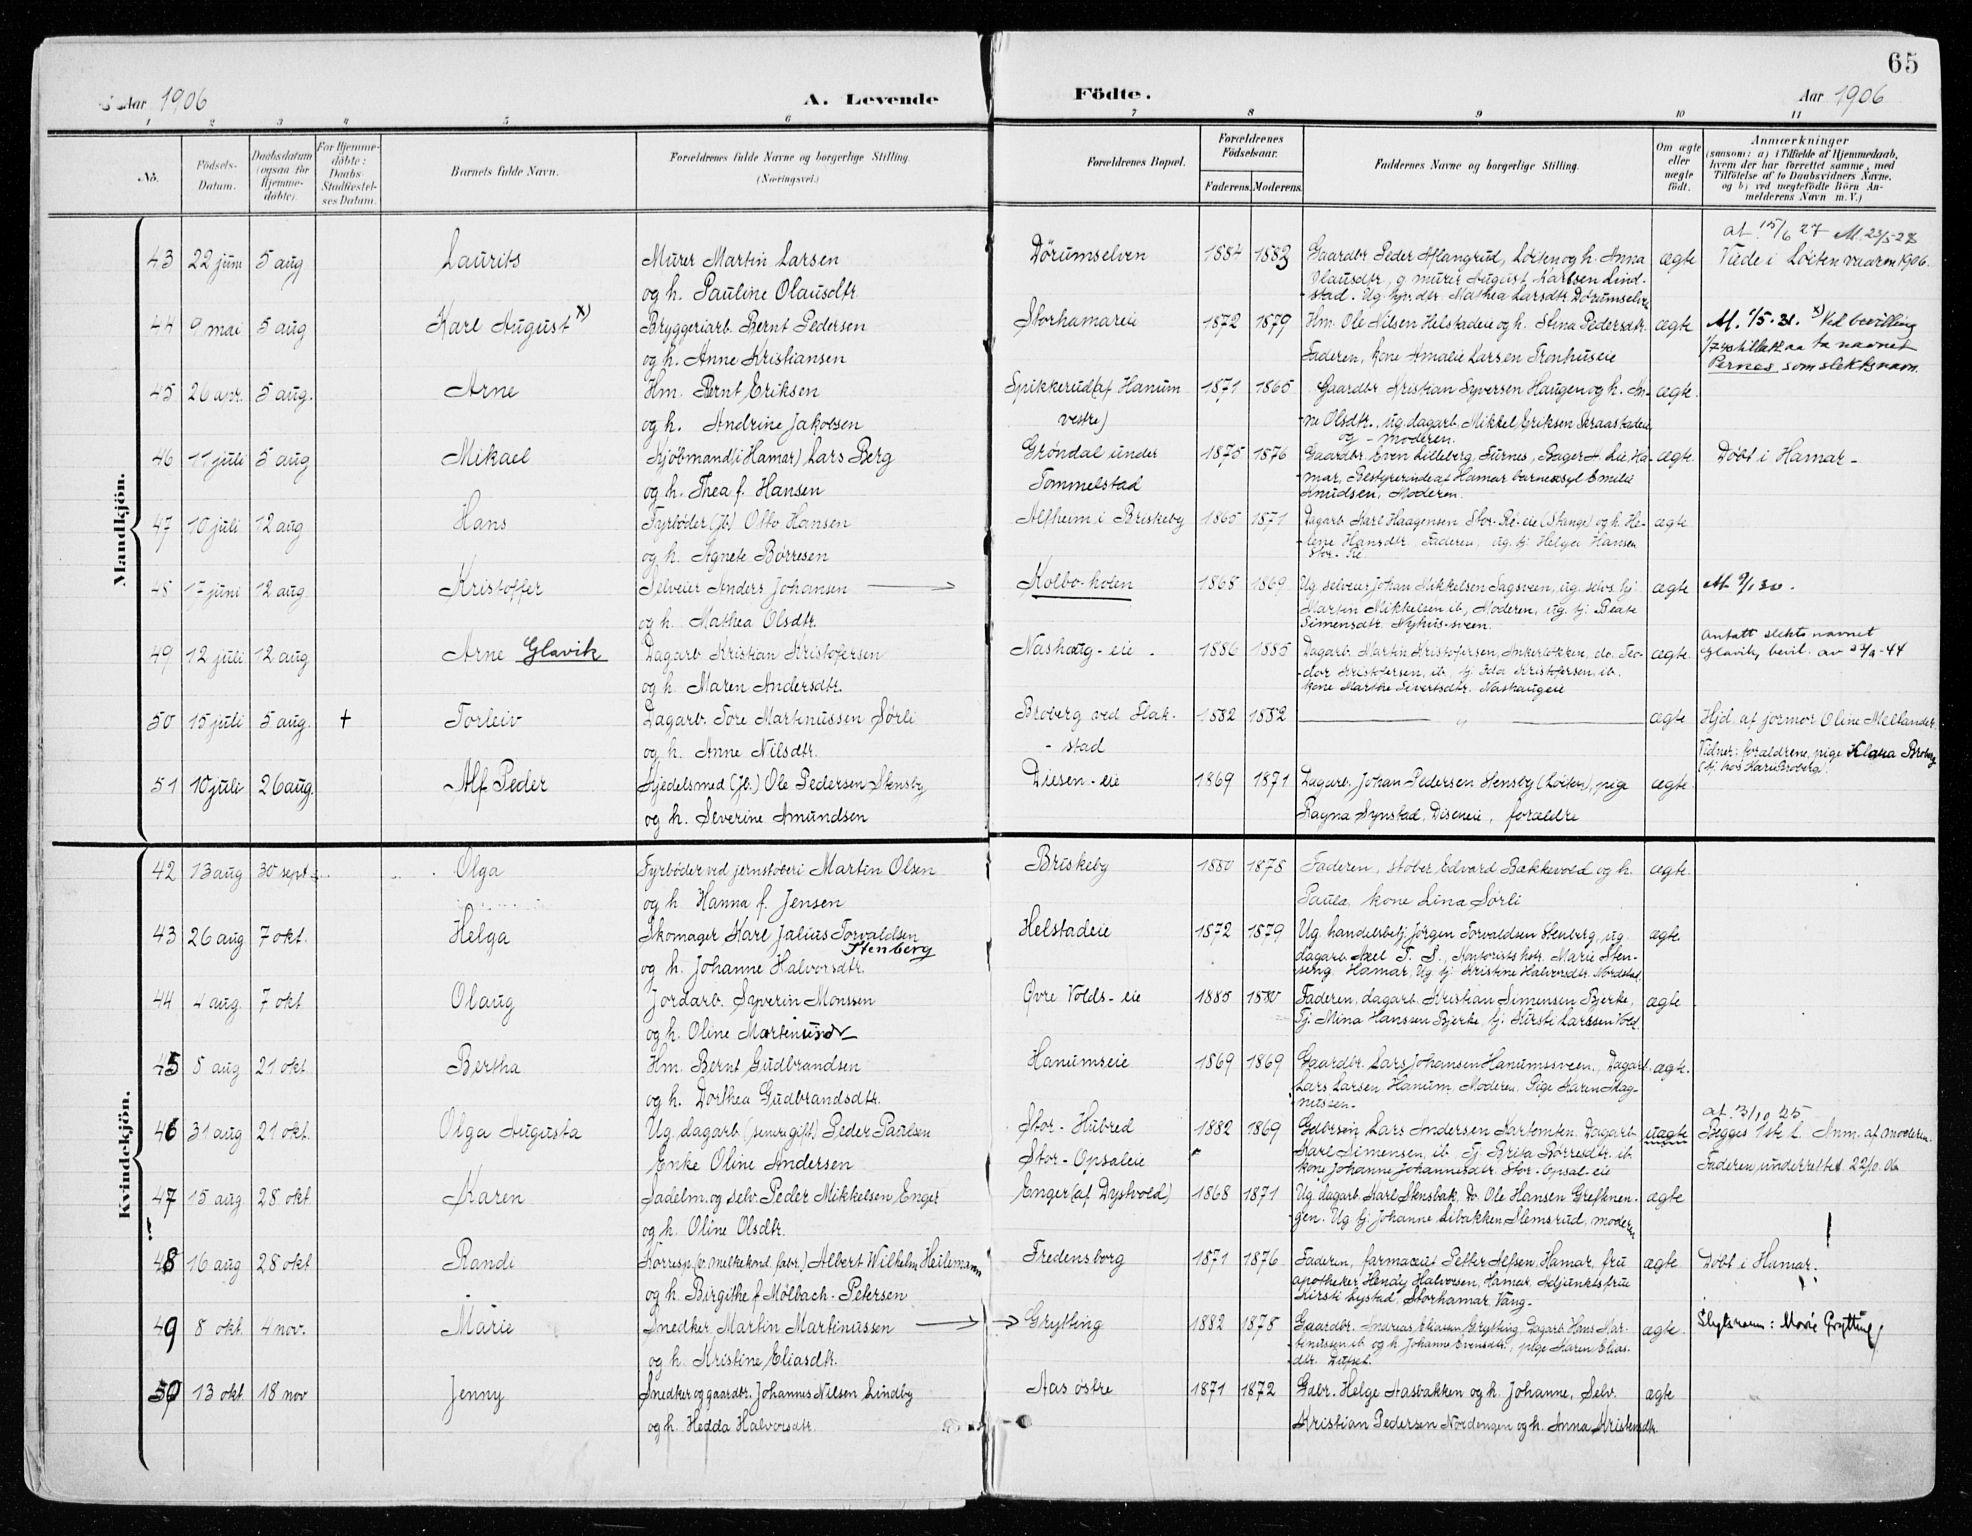 65
Aar 1906 A. Levende Födte. Aar 1906
1 2 3 4 5 6 7 8 9 10 11
No. Födsels-Datum. Daabsdatum (ogsaa for Hjemme-döbte). For Hjemme-döbte: Daabs Stadfæstel-ses Datum. Barnets fulde Navn. Forældrenes fulde Navne og borgerlige Stilling. (Næringsvei.) Forældrenes Bopæl. Forældrenes Födselsaar. Faderens. Moderens. Faddernes Navne og borgerlige Stilling. Om ægte eller uægte födt. Anmærkninger (saasom: a) i Tilfælde af Hjemmedaab, hvem der har forrettet samme, med Tilföielse af to Daabsvidners Navne, og b) ved uægtefödte Börn An-melderens Navn m. V.)
Mandkjön.
at 15/6 27 M. 23/5-28
43 22 juni 5 aug Laurits Murer Martin Larsen Dørumselven 1884 1883 Gaardbr Peder Alangrud, Løten og h. Anna ægte Viede i Løiten 1906.
og h. Pauline Olausdtr. Olausdtr, g murer August Karlsen Lind-
stad. Ug. Mathea Larsdtr Dørumselven
44 9 mai 5 aug Karl August x) Bryggeriarb. Bernt Pedersen Storhamareie 1872 1879 Hm. Ole Nilsen Helstadeie og h. Stina Pedersdtr. ægte At. 1/5-31. x) Ved bevilling
og h. Anne Kristiansen Faderen, kone Amalie Larsen Tronhuseie tillatt aa ta navnet
Pernes som slektsnavn.
45 26 apr. 5 aug. Arne Hm. Bernt Eriksen Spikkerud (af Hanum 1871 1865 Gaardbr Kristian Syversen Haugen og h. An- ægte.
og h. Andrine Jakobsen vestre) ne Olsdtr., ug. dagarb. Mikkel Eriksen Skraastadeie
og - moderen.
46 11 juli 5 aug Mikael Kjøbmand (i Hamar) Lars Berg Grøndal under 1875 1876 Gaardbr. Even Lilleberg, Furnes, Bager A. Lie, Ha- ægte Døbt i Hamar -
og h. Thea f. Hansen Tommelstad mar, Bestyrerinde af Hamar barneasyl Emilie
Knudsen, Moderen.
47 10 juli 12 aug Hans Fyrbøder (jb) Otto Hansen Alfheim i Briskeby 1865 1871 Dagarb. Karl Haagensen Stor-Ré-eie (Stange) og h. He- ægte
og h. Agnete Børresen lene Hansdtr. Faderen, ug. tj Helga Hansen
Stor-Ré
48 17 juni 12 aug Kristoffer Selveier Anders Johansen Kolbo-holen 1868 1869 Ug. selveier Johan Mikkelsen Sagsveen, ug. selvs. tj ægte At. 9/1 30.
og h. Mathea Olsdtr. Martin Mikkelsen ib, Moderen, ug. tj Beate
Simensdtr. Nyhus-sveen.
49 12 juli 12 aug Arne Glavik Dagarb. Kristian Kristofersen Nashaug-eie 1886 1885 Dagarb. Martin Kristofersen, Ankerløkken, do. Teo- ægte. Antatt slektsnavnet
og h. Maren Andersdtr. dor Kristofersen, ib, tj Ida Kristofersen, ib. Glavik, bevil. av
kone Marthe Sivertsdtr. Nashaugeie
50 15 juli 5 aug. + Torleiv Dagarb. Tore Martinussen Sørli Broberg ved Flak- 1882 1882 — „ — ægte Hjd. af jormor Oline Mellander
og h. Anne Nilsdtr. - stad Vidner: forældrene, pige Klara Broberg
(tj. hos Kari Broberg).
51 10 juli 26 aug. Alf Peder Kjedelsmed (jb.) Ole Pedersen Stensby Diesen-eie 1869 1871 Dagarb. Johan Pedersen Stensby (Løiten), pige ægte.
og h. Severine Amundsen Ragna Synstad, Diseneie, forældre
Kvindekjön.
42 13 aug 30 sept Olga Fyrbøder ved jernstøberi Martin Olsen Briskeby 1880 1878 Faderen, støber Edvard Bækkevold og h. ægte.
og h. Hanna f. Jensen Paula, kone Lina Sørli
43 26 aug 7 okt. Helga Skomager Karl Julius Torvaldsen Helstadeie 1872 1879 Ug. handelsbetj Jörgen Torvaldsen Stenberg, ug. ægte
Stenberg
og h. Johanne Halvorsdtr. dagarb. Axel T. S., Kontorists hstr. Marie Sten-
seng Hamar, Ug. tj. Kristine Halvorsdtr. Nordstad
44 4 aug. 7 okt Olaug Jordarb. Syverin Monssen Øvre Volds-eie 1885 1880 Faderen, dagarb. Kristian Simensen Bjerke, ægte
og h. Oline Martinusdtr Tj. Mina Hanssen Bjerke, tj. Kirsti Larssen Vold.
45 5 aug 21 okt Bertha Hm. Bernt Gudbrandsen Hanumseie 1869 1869 Gaardbr. Lars Johansen Hanumssveen, Dagarb. ægte.
og h. Dorthea Gudbrandsdtr. Lars Larsen Hanum, Moderen, Pige Karen Mag-
nussen. at. 3/10 25
46 31 aug 21 okt. Olga Augusta Ug. dagarb. (senere gift) Peder Paulsen Stor-Hubred 1882 1869 Gdbrsøn Lars Andersen Kartomten. Dagarb. uægte Begges 1ste l. Anm. af moderen.
Enke Oline Andersen Stor-Opsaleie Karl Simensen, ib. Tj. Brita Børresdtr. ib. Faderen underrettet 22/10. 06
kone Johanne Johannesdtr. Stor-Opsal-eie
47 15 aug 28 okt. Karen Sadelm. og selv. Peder Mikkelsen Enger Enger (af Dystvold) 1868 1871 Ug. dagarb. Karl Stensbak, Do. Ole Hansen Grefknen- ægte
og h. Oline Olsdtr. gen. Ug tj. Johanne Libakken Slemsrud, moderen
48 16 aug 28 okt Randi Korresp. (v. melkekond. fabr.) Albert Wilhelm Heilemann Fredensborg 1871 1876 Faderen, farmaceut Petter Alfsen, Hamar, fru ægte Døbt i Hamar.
og h. Birgithe f Mölbach-Petersen apotheker Hendy Halvorsen, Hamar, Adjunktsfrue
Kirsti Lystad, Storhamar, Vang -
49 8 okt. 4 nov. Marie Snedker Martin Martinussen Grytting 1882 1878 Gaardbr. Andreas Eliassen Grytting, Dagarb. Hans Mar- ægte. Slegtsnavn: Marie Grytting
og h. Kristine Eliasdtr. tinussen ib. og h. Johanne Evensdtr., pige Karen Elias-
dtr.
50 13 okt 18 nov Jenny Snedker og gaardbr. Johannes Nilsen Lindby Aas østre 1871 1872 Gdbr. Helge Aasbakken og h. Johanne, Selv. ægte
og h. Hedda Halvorsdtr. Kristian Pedersen Nordengen og h. Anna Kristensdtr.